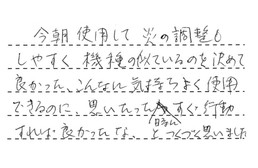 今朝使用して 炎の調整も
しやすく、機種の似ているのを決めて
良かった、こんなに気持ちよく使用
できるのに、思いたった時にすぐ行動
すれば良かったな、、とつくづく思いました